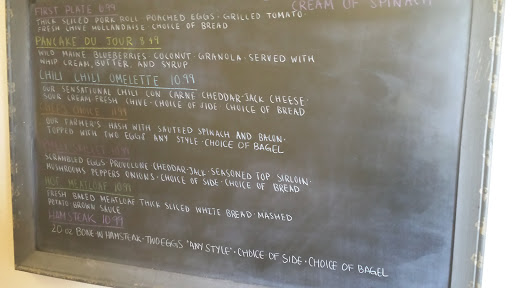 CREAM OF SPINACH
FIRST PLATE 8.99
THICK SLICED PORK ROLL · POACHED EGGS · GRILLED TOMATO
FRESH CHIVE HOLLANDAISE CHOICE OF BREAD
PANCAKE DU TOUR 8.49
WILD MAINE BLUEBERRIES COCONUT · GRANOLA · SERVED WITH
WHIP CREAM, BUTTER AND SYRUP
CHILI CHILI OMELETTE 10.99
OUR SENSATIONAL CHILI CON CARNE CHEDDAR-JACK CHEESE
SOUR CREAM FRESH CHIVE · CHOICE OF SIDE · CHOICE OF BREAD
OUR FARMER'S HASH WITH SAUTEED SPINACH AND BACON
TOPPED WITH TWO EGGS ANY STYLE · CHOICE OF BAGEL
SCRAMBLED EGGS PROVOLONE CHEDDAR-JACK · SEASONED TOP SIRLOIN
MUSHROOMS PEPPERS ONIONS · CHOICE OF SIDE · CHOICE OF BREAD
HOT MEATLOAF 10.99
FRESH BAKED MEATLOAF THICK SLICED WHITE BREAD · MASHED
POTATO BROWN SAUCE
HAMSTEAK 10.99
20 OZ BONE IN HAMSTEAK · TWO EGGS "ANY STYLE" · CHOICE OF SIDE · CHOICE OF BAGEL